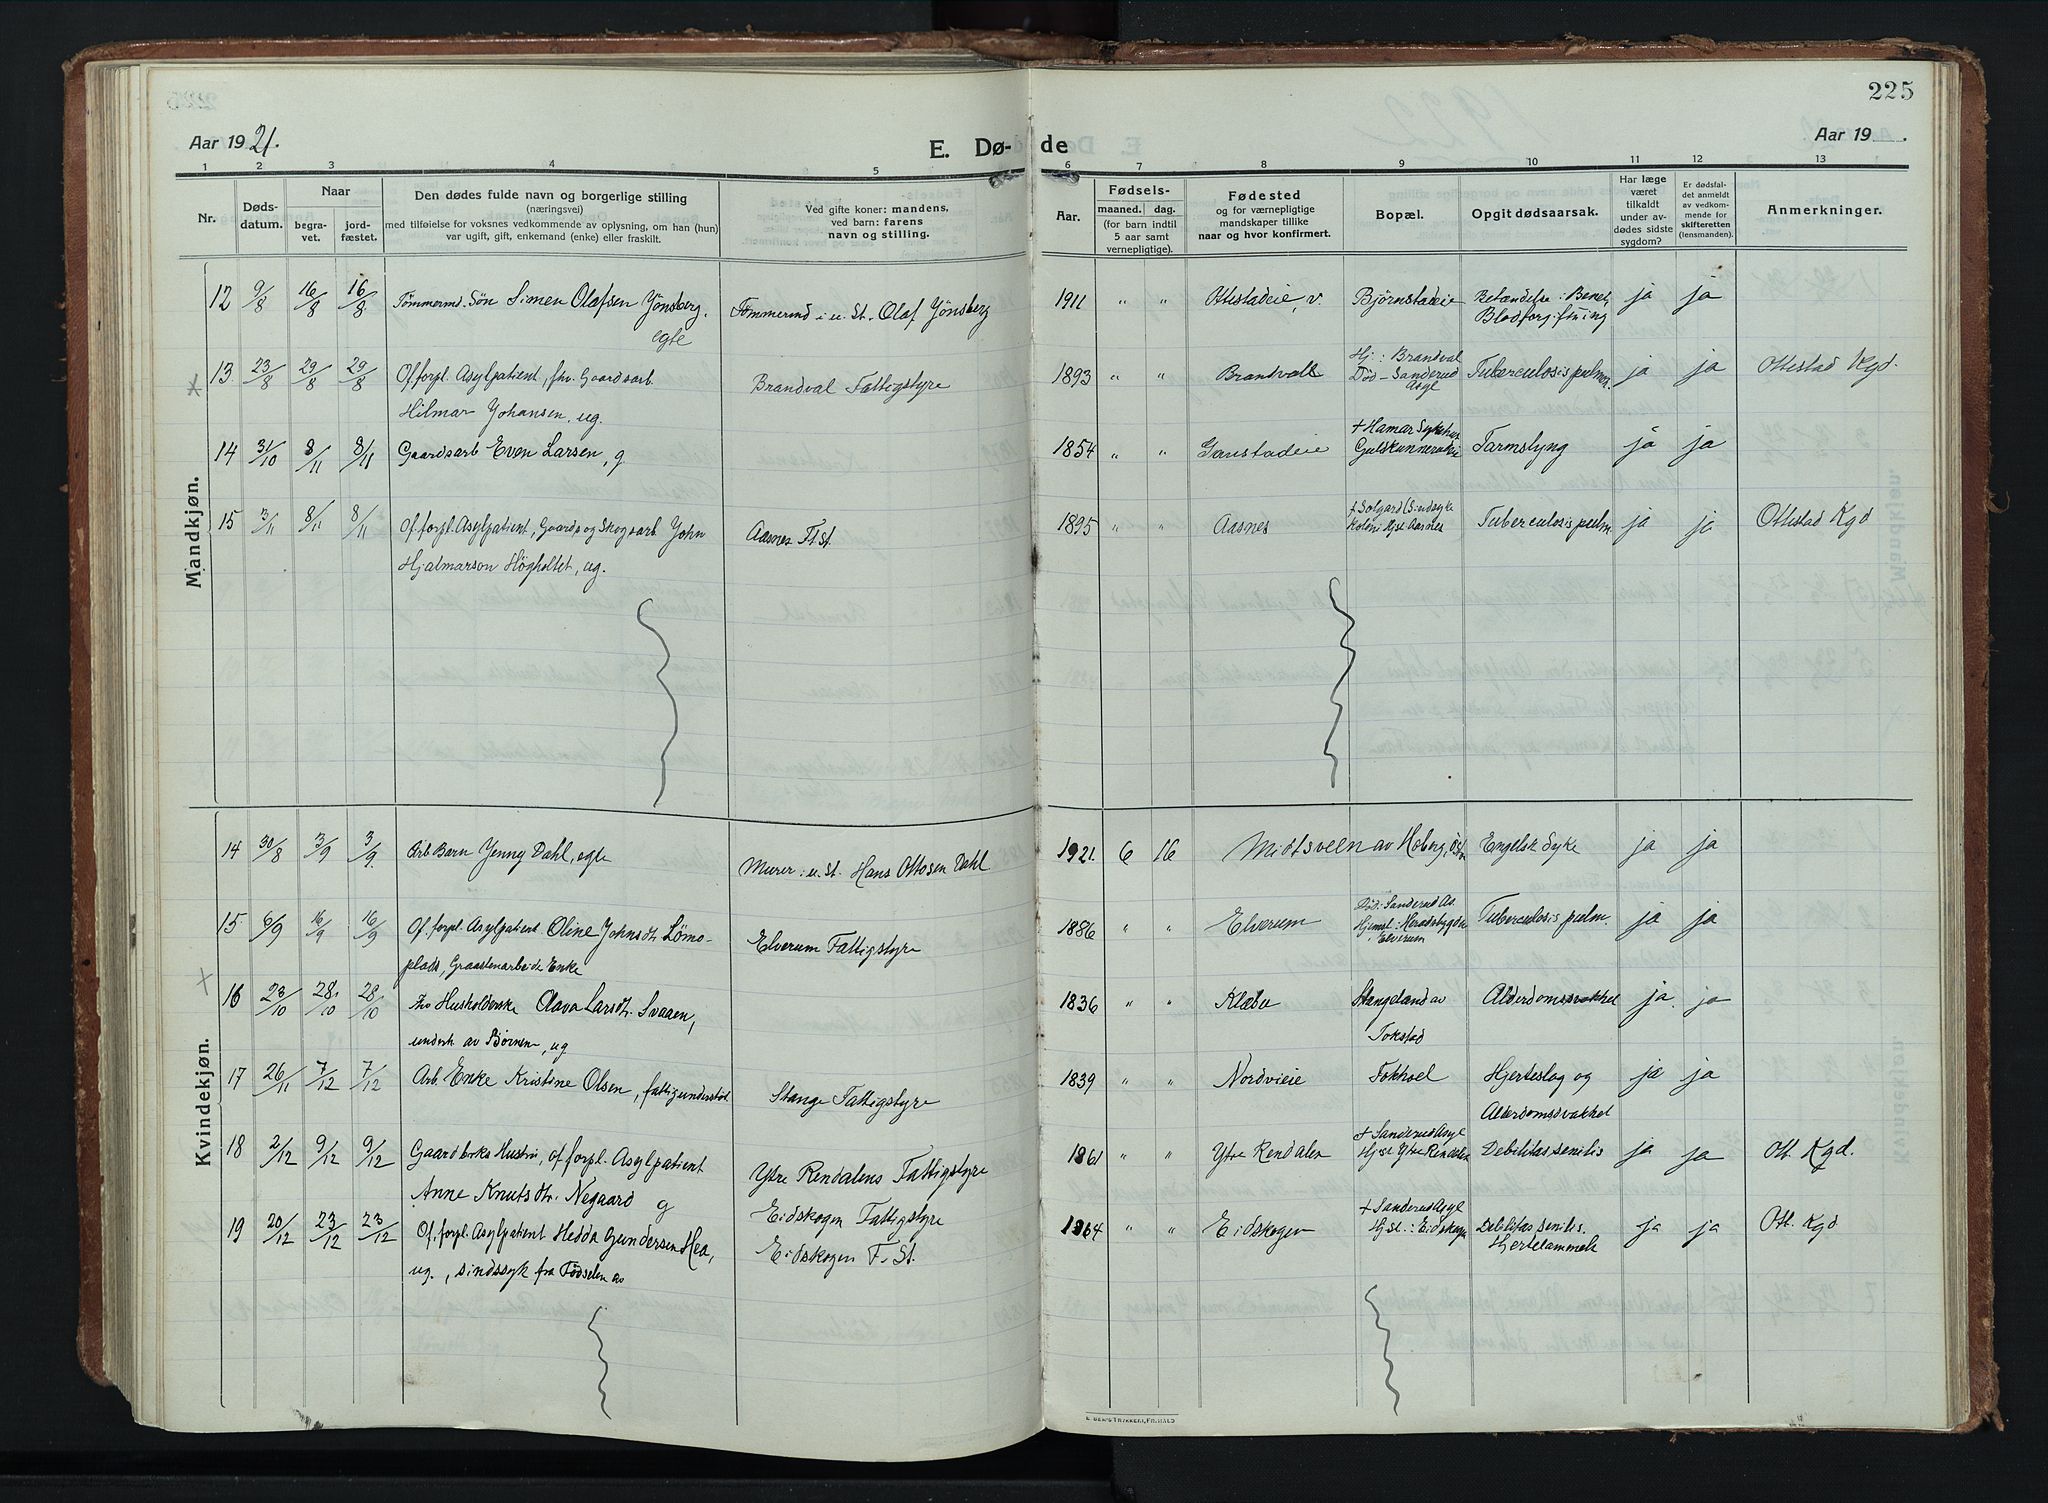 225
Aar 1921.
E. Dø-
de
Aar 19 .
1 2 3 4 5 6 7 8 9 10 11 12 13
Nr.
Døds-
datum.
Naar
begra-
vet.
jord-
fæstet.
Den dødes fulde navn og borgerlige stilling
(næringsvei)
med tilføielse for voksnes vedkommende av oplysning, om han (hun)
var ugift, gift, enkemand (enke) eller fraskilt.
Ved gifte koner: mandens,
ved barn: farens
navn og stilling.
Aar.
Fødsels-
maaned. dag.
(for barn indtil
5 aar samt
vernepligtige).
Fødested
og for værnepligtige
mandskaper tillike
naar og hvor konfirmert.
Bopæl.
Opgit dødsaarsak.
Har læge
været
tilkaldt
under av-
dødes sidste
sygdom?
Er dødsfal-
det anmeldt
av vedkom-
mende for
skifteretten
(lensmanden).
Anmerkninger.
Mandkjøn.
12 9/8 16/8 16/8 Tømmermd. Søn Simen Olafsen Jønsberg, Tømmermd i u. St. Olaf Jønsberg 1911 " " Ottestadeie, v. Bjørnstadeie Betændelse i Benet, ja ja
egte Blodforgiftning
13 23/8 29/8 29/8 Of. forpl. Asylpatient, fhv. Gaardsarb. Brandval Fattigstyre 1893 " " Brandvall Hj: Brandval Tuberculosis pulm. ja ja Ottestad Kgd.
Hilmar Johansen, ug. Død - Sanderud
Asyl
14 31/10 8/11 8/11 Gaardsarb Even Larsen, g 1854 " " Gaustadeie + Hamar Sykehus Tarmslyng ja ja
15 3/11 8/11 8/11 Of. forpl. Asylpatient, Gaards og Skogsarb. John Aasnes F. St. 1895 " " Aasnes + Solgard (Sindsyke Tuberculosis pulm. ja ja Ottestad Kgd
Hjalmarson Högholtet, ug. koloni Hjst Aasnes
Kvindekjøn.
14 30/8 3/9 3/9 Arb Barn Jenny Dahl, egte Murer i u. St. Hans Ottosen Dahl 1921. 6 16 Midtsveen av Hoberg, Engelsk Syke ja ja
15 6/9 16/9 16/9 Of. forpl. Asylpatient Oline Johnsdt. Lömo- Elverum Fattigstyre 1886 " " Elverum Død: Sanderud As. Tuberculosis pulm. ja ja
plads, Graastenarbeide Enke Hjemst: Heradsbygden
Elverum
16 23/10 28/10 28/10 fhv Husholderske Olava Larsdt. Svaaen, 1836 " " Klæbu Stangeland av Alderdomssvakhet ja. ja
underh. av Børnene, ug Tokstad
17 26/11 7/12 7/12 Arb. Enke Kristine Olsen, fattigunderstøt Stange Fattigstyre 1839 " " Nordvieie Tokhol Hjerteslag og ja ja
Alderdomssvakhet
18 2/12 9/12 9/12 Gaardbrks Hustru, of. forpl. Asylpatient Ytre Rendalens Fattigstyre 1861 " " Ytre Rendalen + Sanderud Asyl Debilitas senilis ja ja Ott. Kgd.
Anne Knutsdtr. Negaard g Hjst Ytre Rendalen
19 20/12 23/12 23/12 Of. forpl. Asylpatient Hedda Gundersen Hea, Eidskogen Fattigstyre 1864 " " Eidskogen + Sanderud Asyl Debilitas senilis. ja ja Ott. Kgd
ug., sindssyk fra Fødselen av Eidskogen F. St. Hj St.: Eidskogen Hjertelammelse